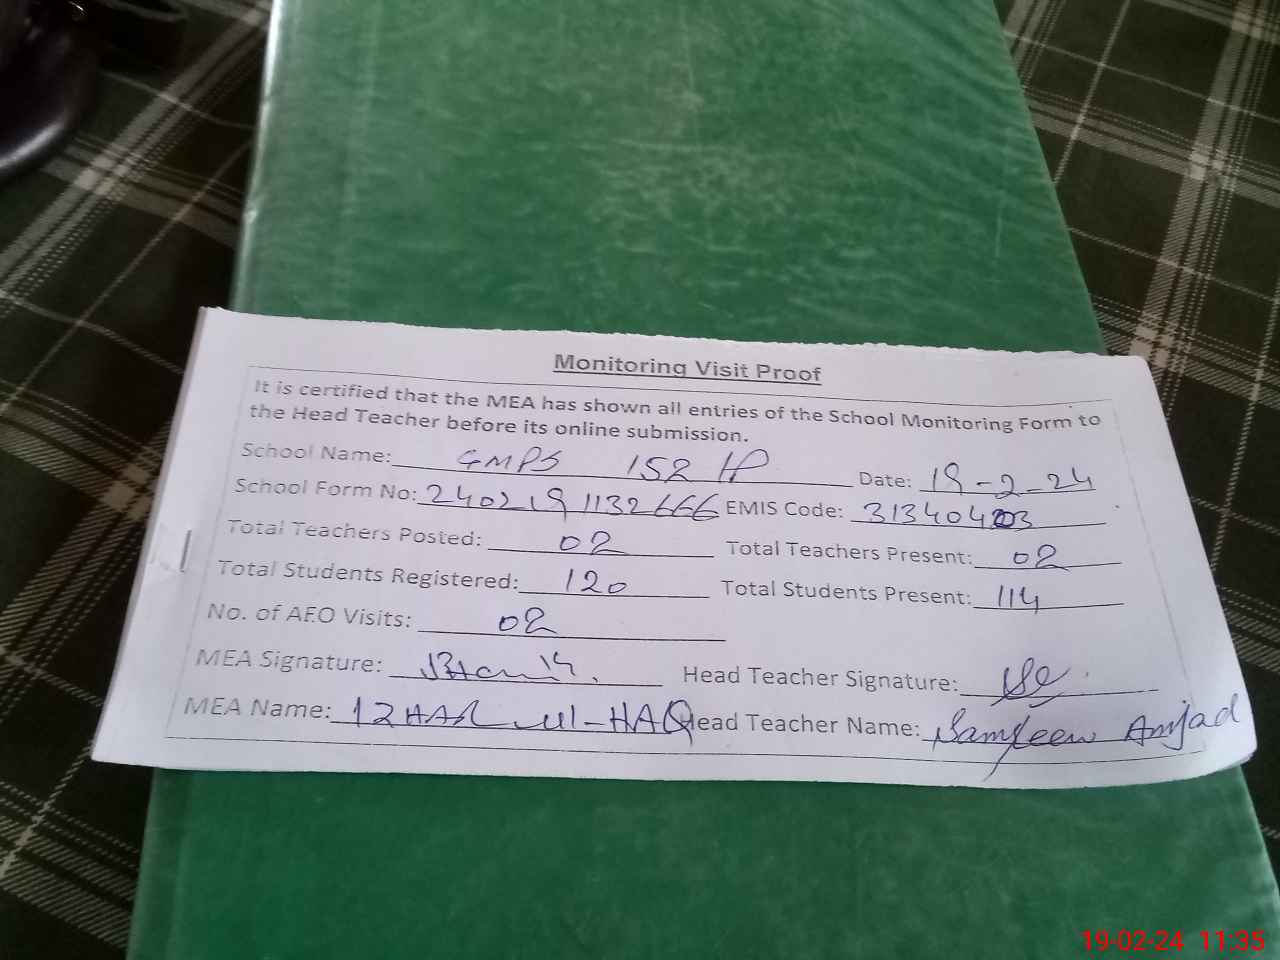 Monitoring Visit Proof
It is certified that the MEA has shown all entries of the School Monitoring Form to
the Head Teacher before its online submission.
School Name: GMPS 152 P Date: 19-2-24
School Form No: 240219 1132666 EMIS Code: 31340403
Total Teachers Posted: 02 Total Teachers Present: 02
Total Students Registered: 120 Total Students Present: 114
No. of AEO Visits: 02
MEA Signature: Head Teacher Signature:
MEA Name: IZHAR ul-HAQ Head Teacher Name: Amjad
19-02-24 11:35